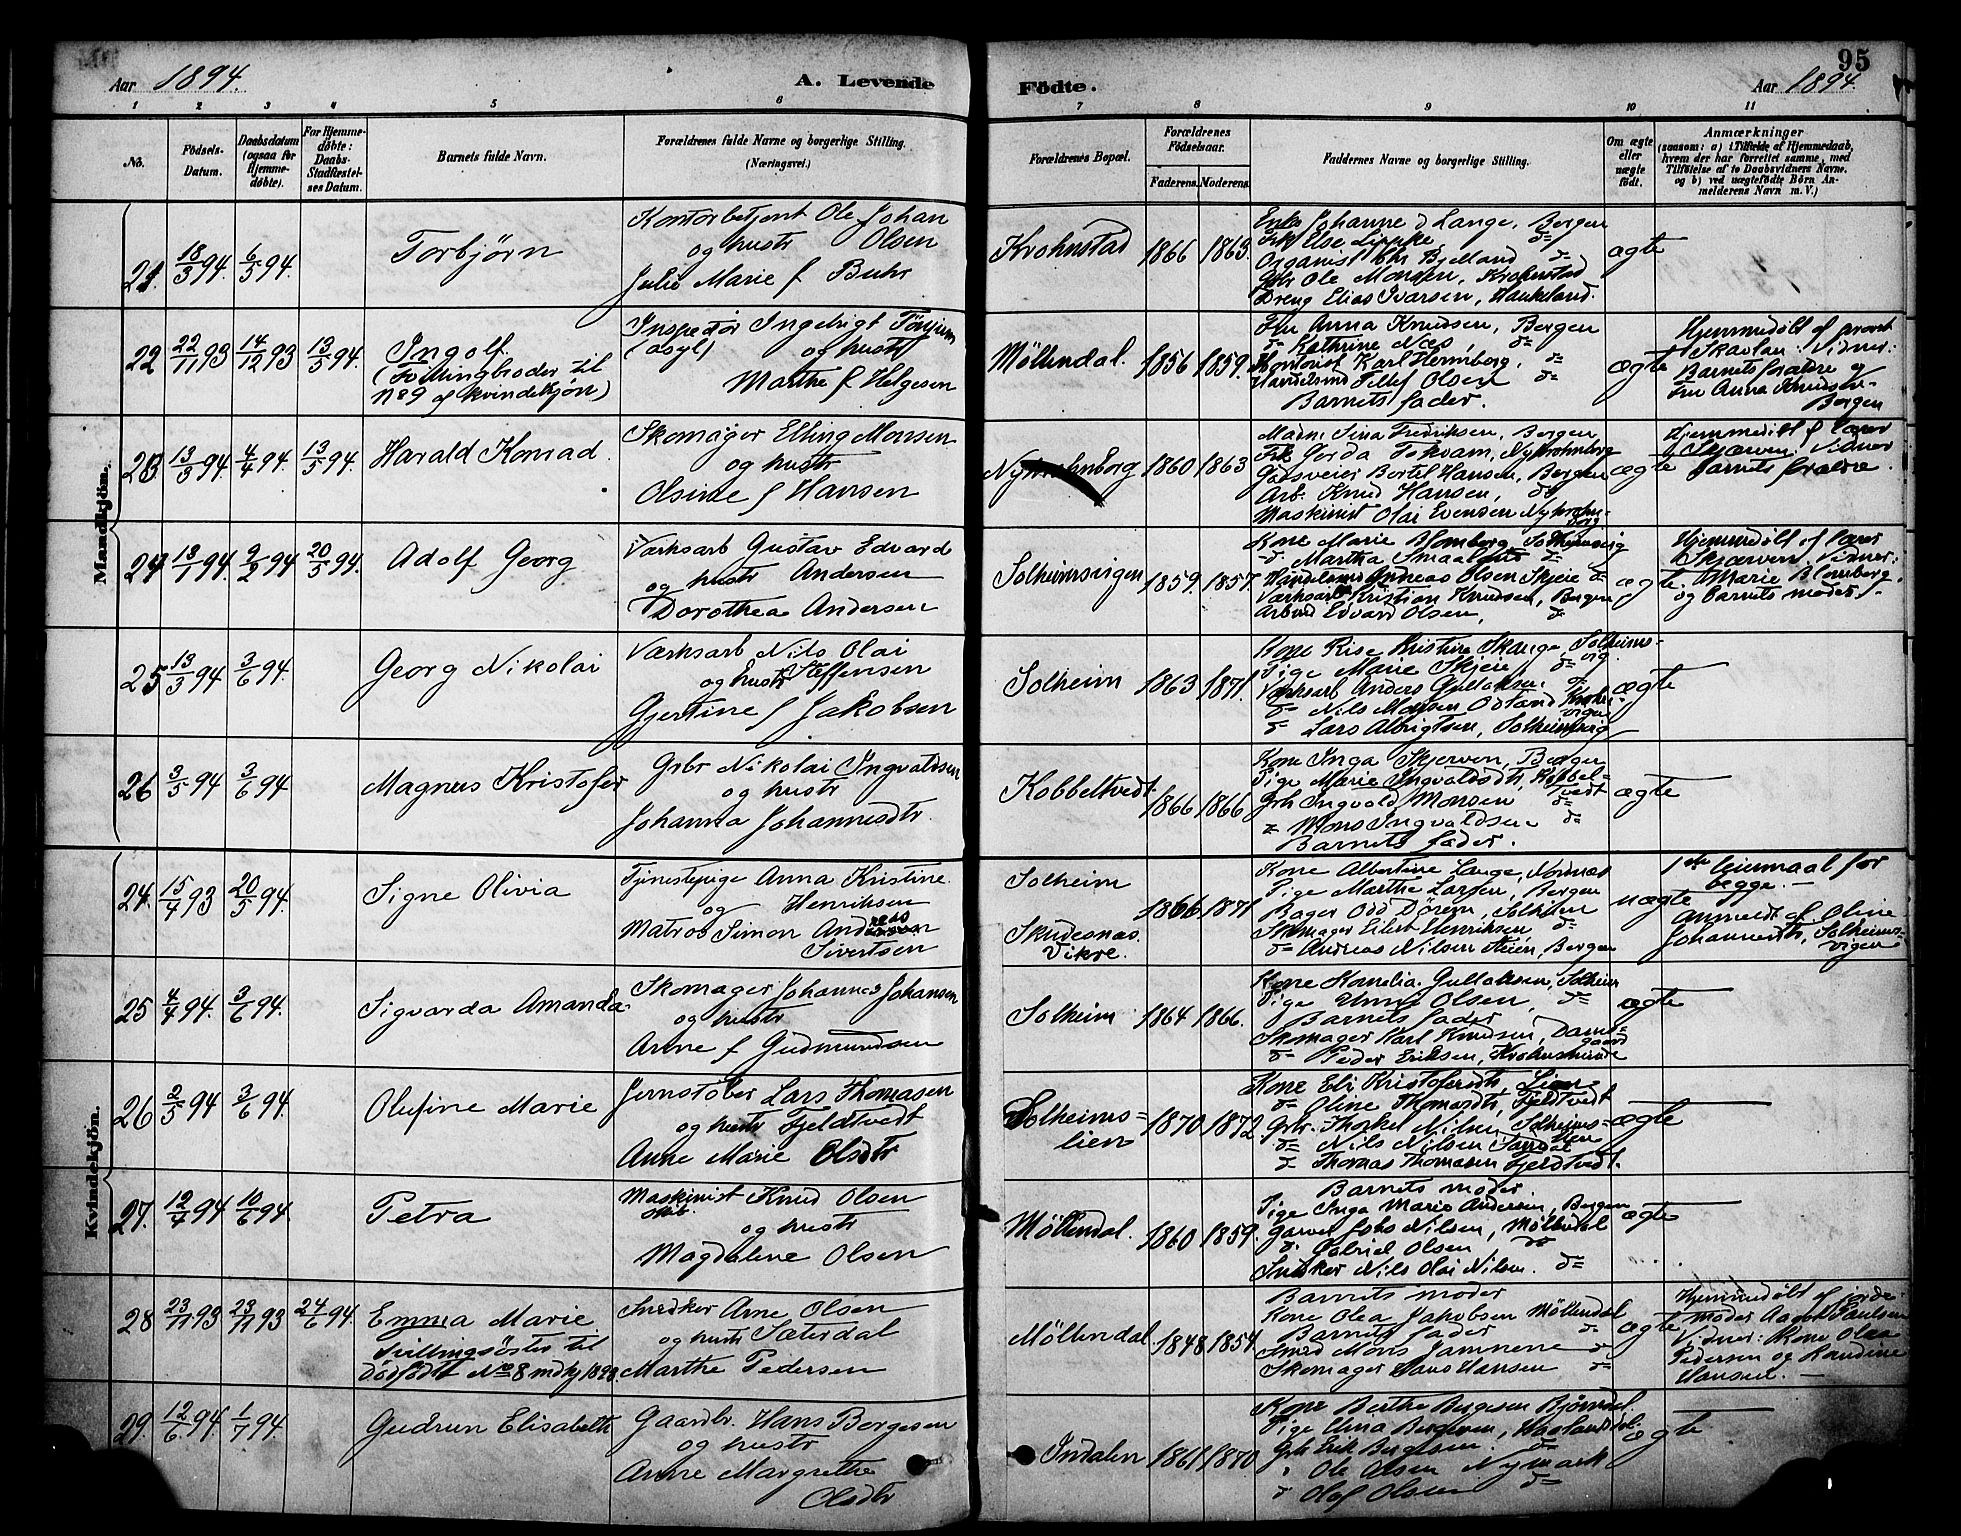 95
Aar 1894.
A. Levende Födte.
Aar 1894.
1 2 3 4 5 6 7 8 9 10 11
No.
Födsels-Datum.
Daabsdatum (ogsaa for Hjemmedøbte).
For Hjemmedøbte: Daabs-Stadfæstelses Datum.
Barnets fulde Navn.
Forældrenes fulde Navne og borgerlige Stilling.
(Næringsvei.)
Forældrenes Bopæl.
Forældrenes Födselsaar.
Faderens. Moderens.
Faddernes Navne og borgerlige Stilling.
Om ægte eller uægte födt.
Anmærkninger
(saasom: a) i Tilfælde af Hjemmedaab,
hvem der har forrettet samme, med
Tilföielse af to Daabsvidners Navne.
og b) ved uægtefödte Börn An-
melderens Navn m. V.)
Mandkjön.
21. 18/3 94. 6/5 94.
Torbjörn
Kontorbetjent Ole Johan
og hustr Olsen
Julie Marie f Buhr
Krohnstad 1866 1863.
Enke Johanne d Lange, Bergen
Frk Else Lippke, d=
Organist Chr Bjelland d=
Gbr Ole Monsen, Krohnstad
Dreng Elias Ivarsen, Haukeland.
ægte
22 22/11 93 14/12 93 13/5 94.
Ingolf.
(Tvillingbroder til
N 89 af kvindekjøn)
Inspektör Ingebrigt Tönjum
(asyl) og hustr
Marthe f Helgesen
Möllendal. 1856 1859.
Fru Anna Knudsen, Bergen
d= Kathrine Næs, d=
Kontorist Karl Hermberg, d=
Handelsmd Tellef Olsen d=
Barnets fader.
ægte
Hjemmedöbt af provst
Skavlan. Vidner:
Barnets forældre og
Fru Anna Knudsen.
Bergen
23. 13/3 94. 4/4 94. 13/5 94.
Harald Konrad.
Skomager Elling Monsen
og hustr
Olsine f Hansen
Nykrohnborg 1860 1863
Madm. Sina Fredriksen, Bergen
Frk Gorda Tokvam, Nykrohnborg
Gasveier Bertel Hansen, Bergen
Arb. Knud Hansen, do
Maskinist Olai Evensen Nykrohn-
borg
ægte
Hjemmedöbt af lærer
Skjærven. Vidner
barnets forældre.
24 13/1 94. 9/2 94 20/5 94.
Adolf Georg
Værksarb Gustav Edvard
og hustr Andersen
Dorothea Andersen
Solheimsvigen 1859. 1857.
Kone Marie Blomberg Solheimsvig
d= Martha Smaalands d=
Handelsmd Andreas Olsen Skjeie d=
Værksarb Kristian Knudsen, Bergen
Arbmd Edvard Olsen, d=
ægte.
Hjemmedöbt af lærer
Skjærven. Vidner:
Marie Blomberg.
og barnets moder.
25 13/3 94 3/6 94.
Georg Nikolai
Værksarb Nils Olai
og hustr Steffensen
Gjertine f Jakobsen
Solheim 1863 1871.
Pige Marie Skjeie, d=
Værksarb Anders Gullaksen. d=
d= Lars Albrigtsen, Solheimsvig
ægte
26 3/5 94 3/6 94
Magnus Kristofer
Grbr Nikolai Ingvaldsen
og hustr
Johanna Johannesdtr.
Kobbeltvedt. 1866 1866
Kone Inga Skjerven, Bergen
Pige Marie Ingvaldsdtr, Kobbel-
tvedt
Grbr Ingvald Monsen d=
" Mons Ingvaldsen d=
Barnets fader.
ægte
Kvindekjön.
24. 15/4 93 20/5 94.
Signe Olivia
Tjenestepige Anna Kristine
og Henriksen
Matros Simon Andreas
Sivertsen
Solheim
Skudesnæs.
Vikre. 1866 1871
Kone Albertine Lange, Nordnæs
Pige Marthe Larsen, Bergen
Bager Odd Dörem, Solheim
Skomager Eilert Henriksen d=
d= Andreas Nilsen Steien, Bergen
uægte
1ste leiermaal for
begge.
Anmeldt af Oline
Johannesdtr, Solheims-
vigen
25 4/4 94. 3/6 94.
Sigvarda Amanda
Skomager Johannes Johansen
og hustr
Anne f Gudmundsen
Solheim 1864 1866.
Kone Kornelia Gullaksen, Solheim
Pige Anna Olsen, d=
Barnets fader
Skomager Karl Knudsen, Dams-
gaard
d= Peder Eriksen, Krohnsminde
ægte
26 2/5 94 3/6 94.
Olufine Marie
Jernstöber Lars Thomasen
og hustr Fjeldtvedt
Anne Marie Olsdtr
Solheims-
lien 1870 1872
Kone Eli Kristofersdtr, Lien
d= Oline Thomasdtr, Fjeldtvedt
Grbr. Thorkel Nilsen Solheims-
lien
d= Nils Nilsen Sandal
d= Thomas Thomasen Fjeldtvedt.
ægte
27. 12/4 94 10/6 94.
Petra
Maskinist Knud Olsen
og hustr
Magdalene Olsen
Möllendal. 1860 1859.
Barnets moder
Pige Inga Marie Andersen, Bergen
Garver Johs Nilsen, Möllendal
d= Gabriel Olsen do
Snedker Nils Olai Nilsen. d=
ægte
28 23/11 93 23/11 93 24/6 94
Emma Marie
Tvillingsöster til
dödfödt No 8 mdkj 1893.
Snedker Arne Olsen
og hustr Sæterdal
Marthe Pedersen
Möllendal 1848 1854
Barnets moder
Kone Olea Jakobsen Möllendal
Barnets fader d=
Smed Mons Jamnene d=
Skomager Hans Hansen d=
ægte
Hjemmedöbt af jorde-
moder Aagot Paulsen
Vidner: Kone Olea
Pedersen og Randine
Hansen.
29. 12/6 94. 1/7 94.
Gudrun Elisabeth
Gaardbr. Hans Børgesen
og hustr
Anne Margrethe
Olsdtr
Indalen 1861 1870
Grbr Erik Bergesen. d=
" Ole Olsen Nymark
d= Olaf Olsen d=
ægte